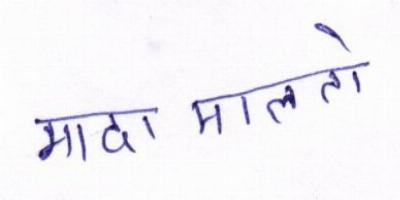 मादा मालतो